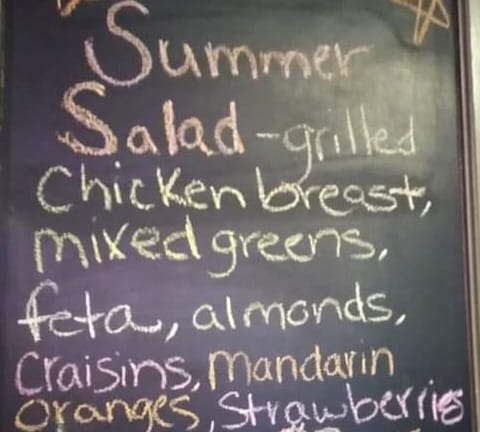 Summer
Salad - grilled
Chicken breast,
mixed greens,
feta, almonds,
Craisins, Mandarin
Oranges, Strawberries